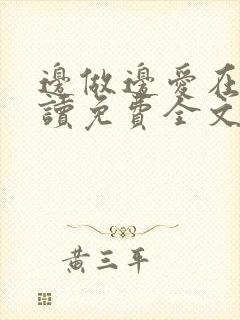 邊做邊愛在
讀免費全文
黃三平